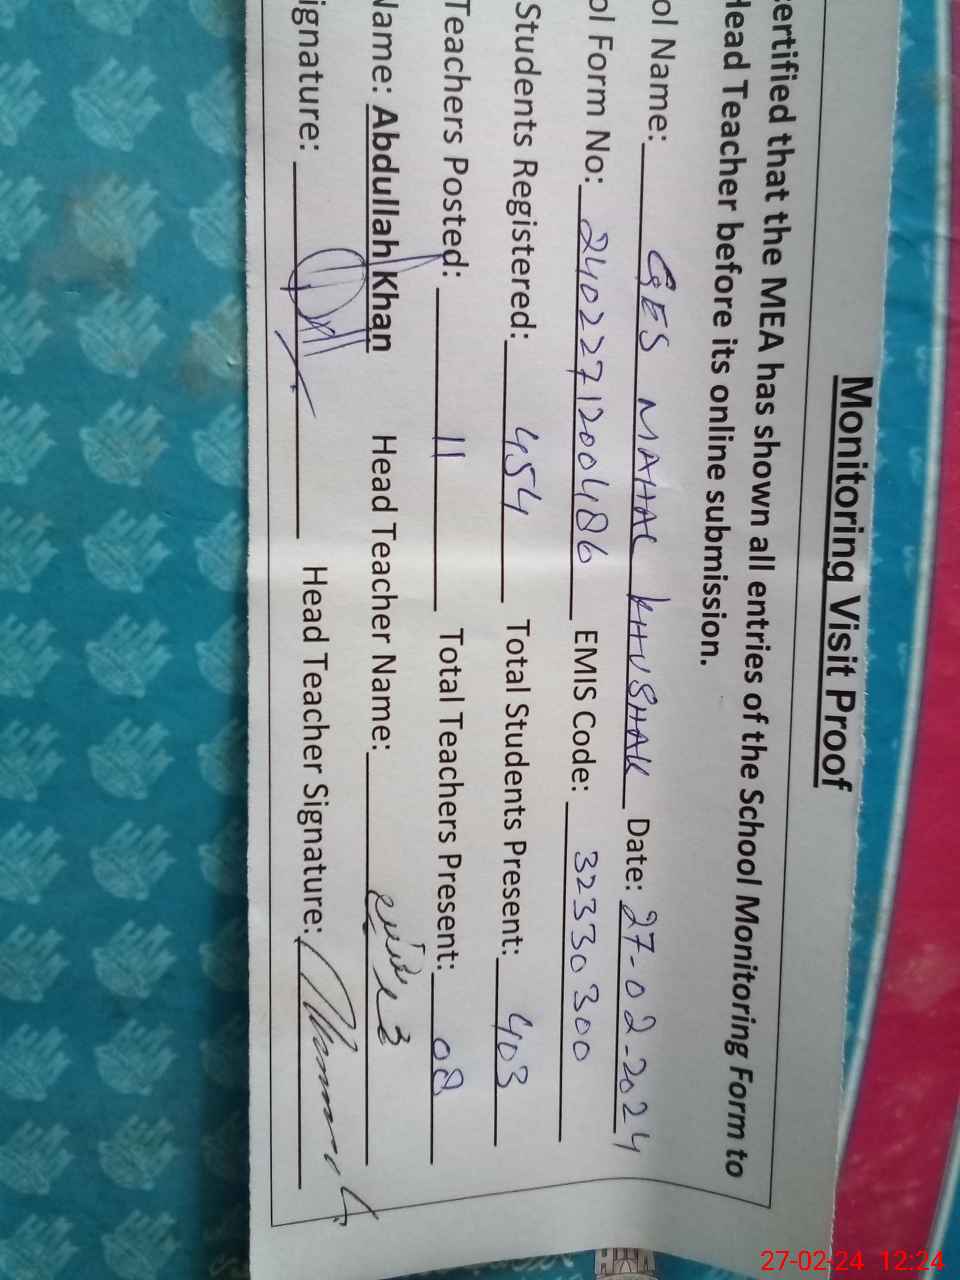 Monitoring Visit Proof
ertified that the MEA has shown all entries of the School Monitoring Form to
Head Teacher before its online submission.
ol Name: GES MAHAL KHUSHAK Date: 27-02-2024
ol Form No: 2402271200486 EMIS Code: 32330300
Students Registered: 454 Total Students Present: 403
Teachers Posted: 11 Total Teachers Present: 08
Name: Abdullah Khan Head Teacher Name:
ignature: Head Teacher Signature:
27-02-24 12:24